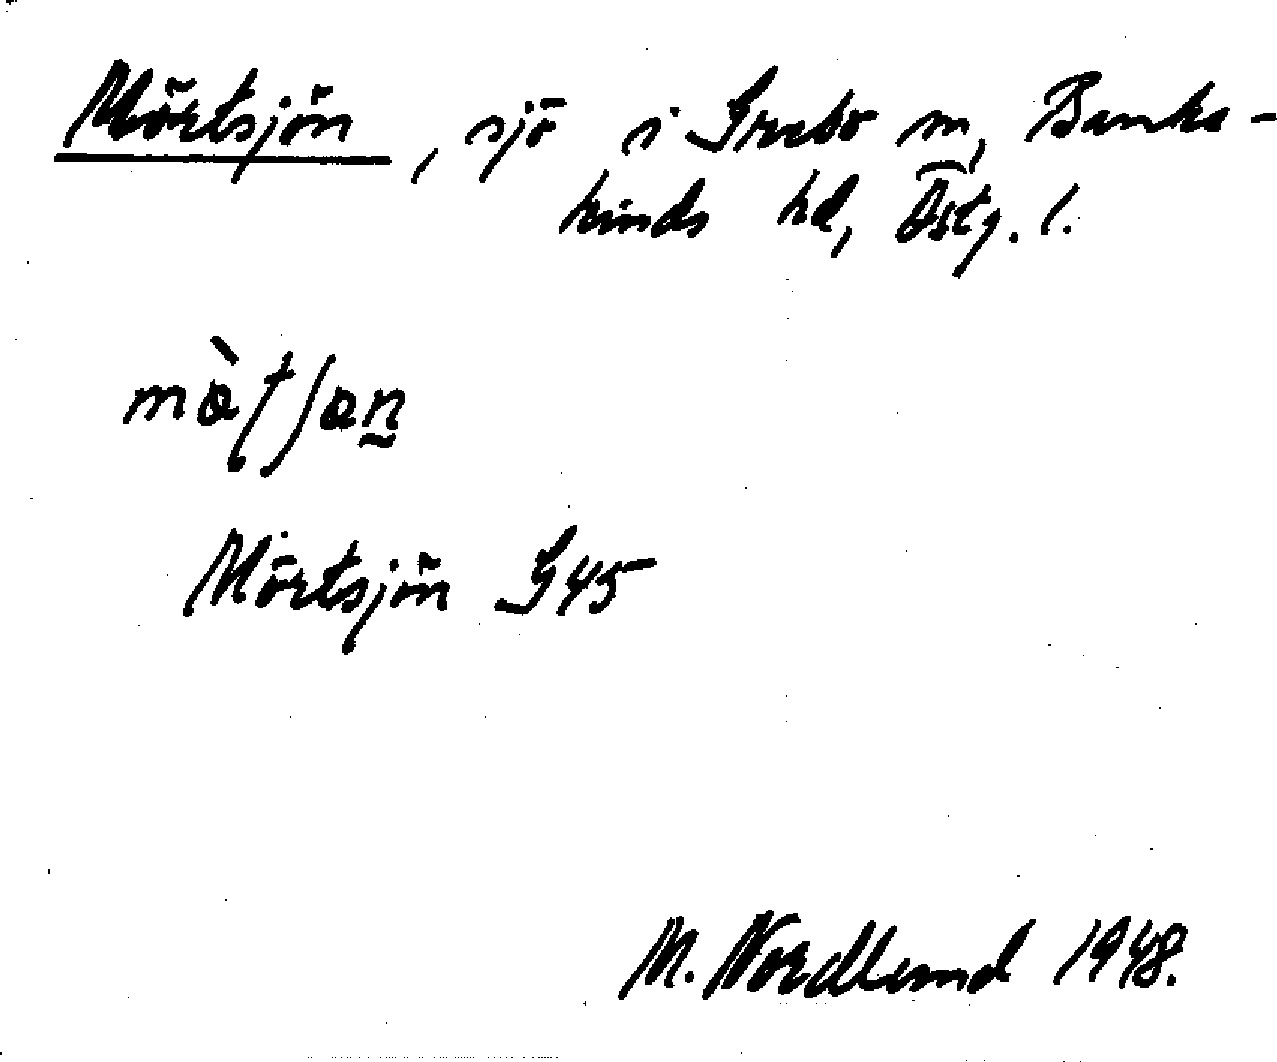 Mörtsjön, sjö i Grebo sn, Banke-
kinds hd, Östg. l.
Mörtsjön G45
M. Nordlund 1948.